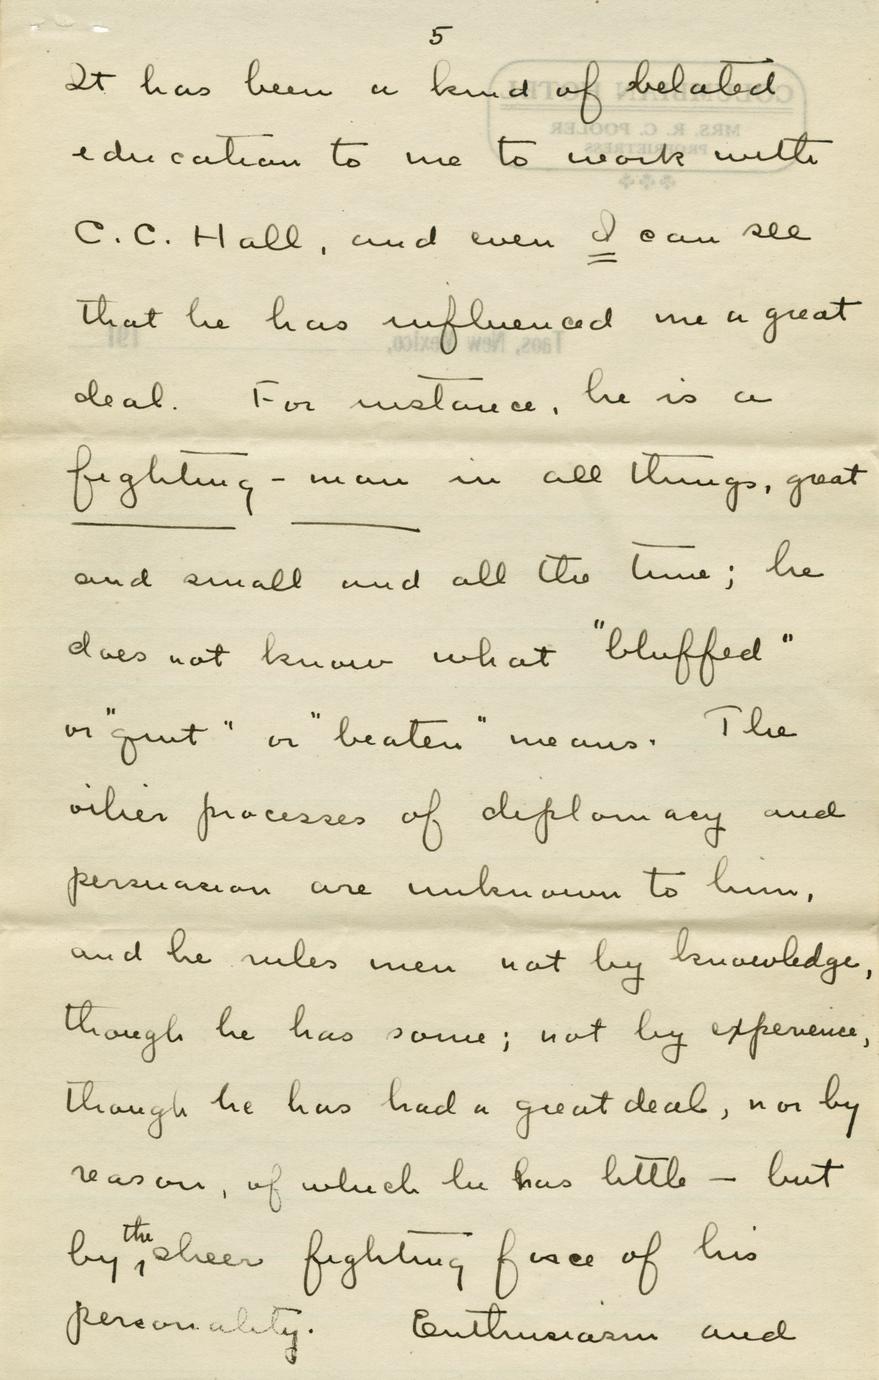 5
It has been a kind of belated
education to me to work with
C.C. Hall, and even I can see
that he has influenced me a great
deal. For instance, he is a
fighting-man in all things, great
and small and all the time; he
does not know what "bluffed"
or "quit" or "beaten" means. The
oilier processes of diplomacy and
persuasion are unknown to him,
and he rules men not by knowledge,
though he has some; not by experience,
though he has had a great deal, nor by
reason, of which he has little — but
by the sheer fighting force of his
personality. Enthusiasm and
COLUMBIAN HOTEL
MRS. R. C. POOLER
PROPRIETRESS
Taos, New Mexico, 191